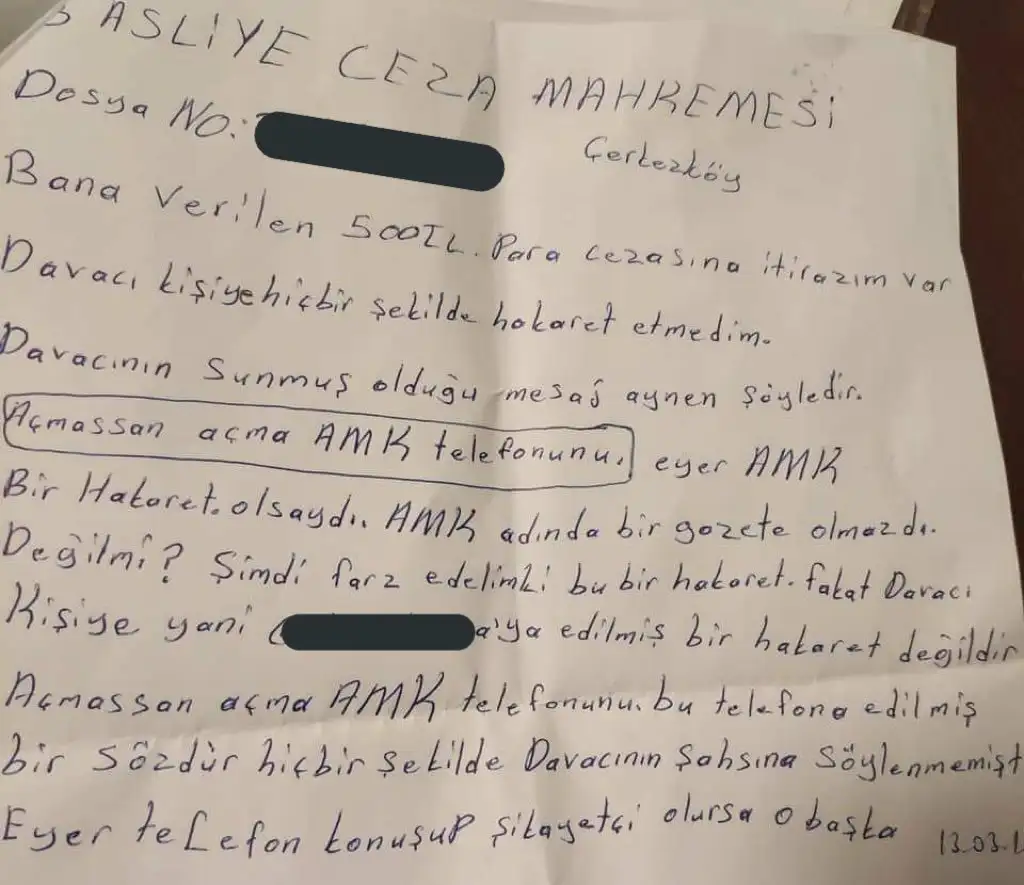 3 ASLİYE CEZA MAHKEMESİ
Çerkezköy
Dosya NO:
Bana verilen 500TL. Para cezasına itirazım var
Davacı kişiye hiçbir şekilde hakaret etmedim.
Davacının sunmuş olduğu mesaj aynen şöyledir.
Açmassan açma AMK telefonunu. eyer AMK
Bir Hakaret. olsaydı. AMK adında bir gazete olmazdı.
Değilmi? Şimdi farz edelimki bu bir hakaret. fakat Davacı
Kişiye yani a'ya edilmiş bir hakaret değildir
Açmassan açma AMK telefonunu. bu telefona edilmiş
bir sözdür hiçbir şekilde Davacının şahsına söylenmemişt
Eyer telefon konuşup şikayetçi olursa o başka
13.03.1